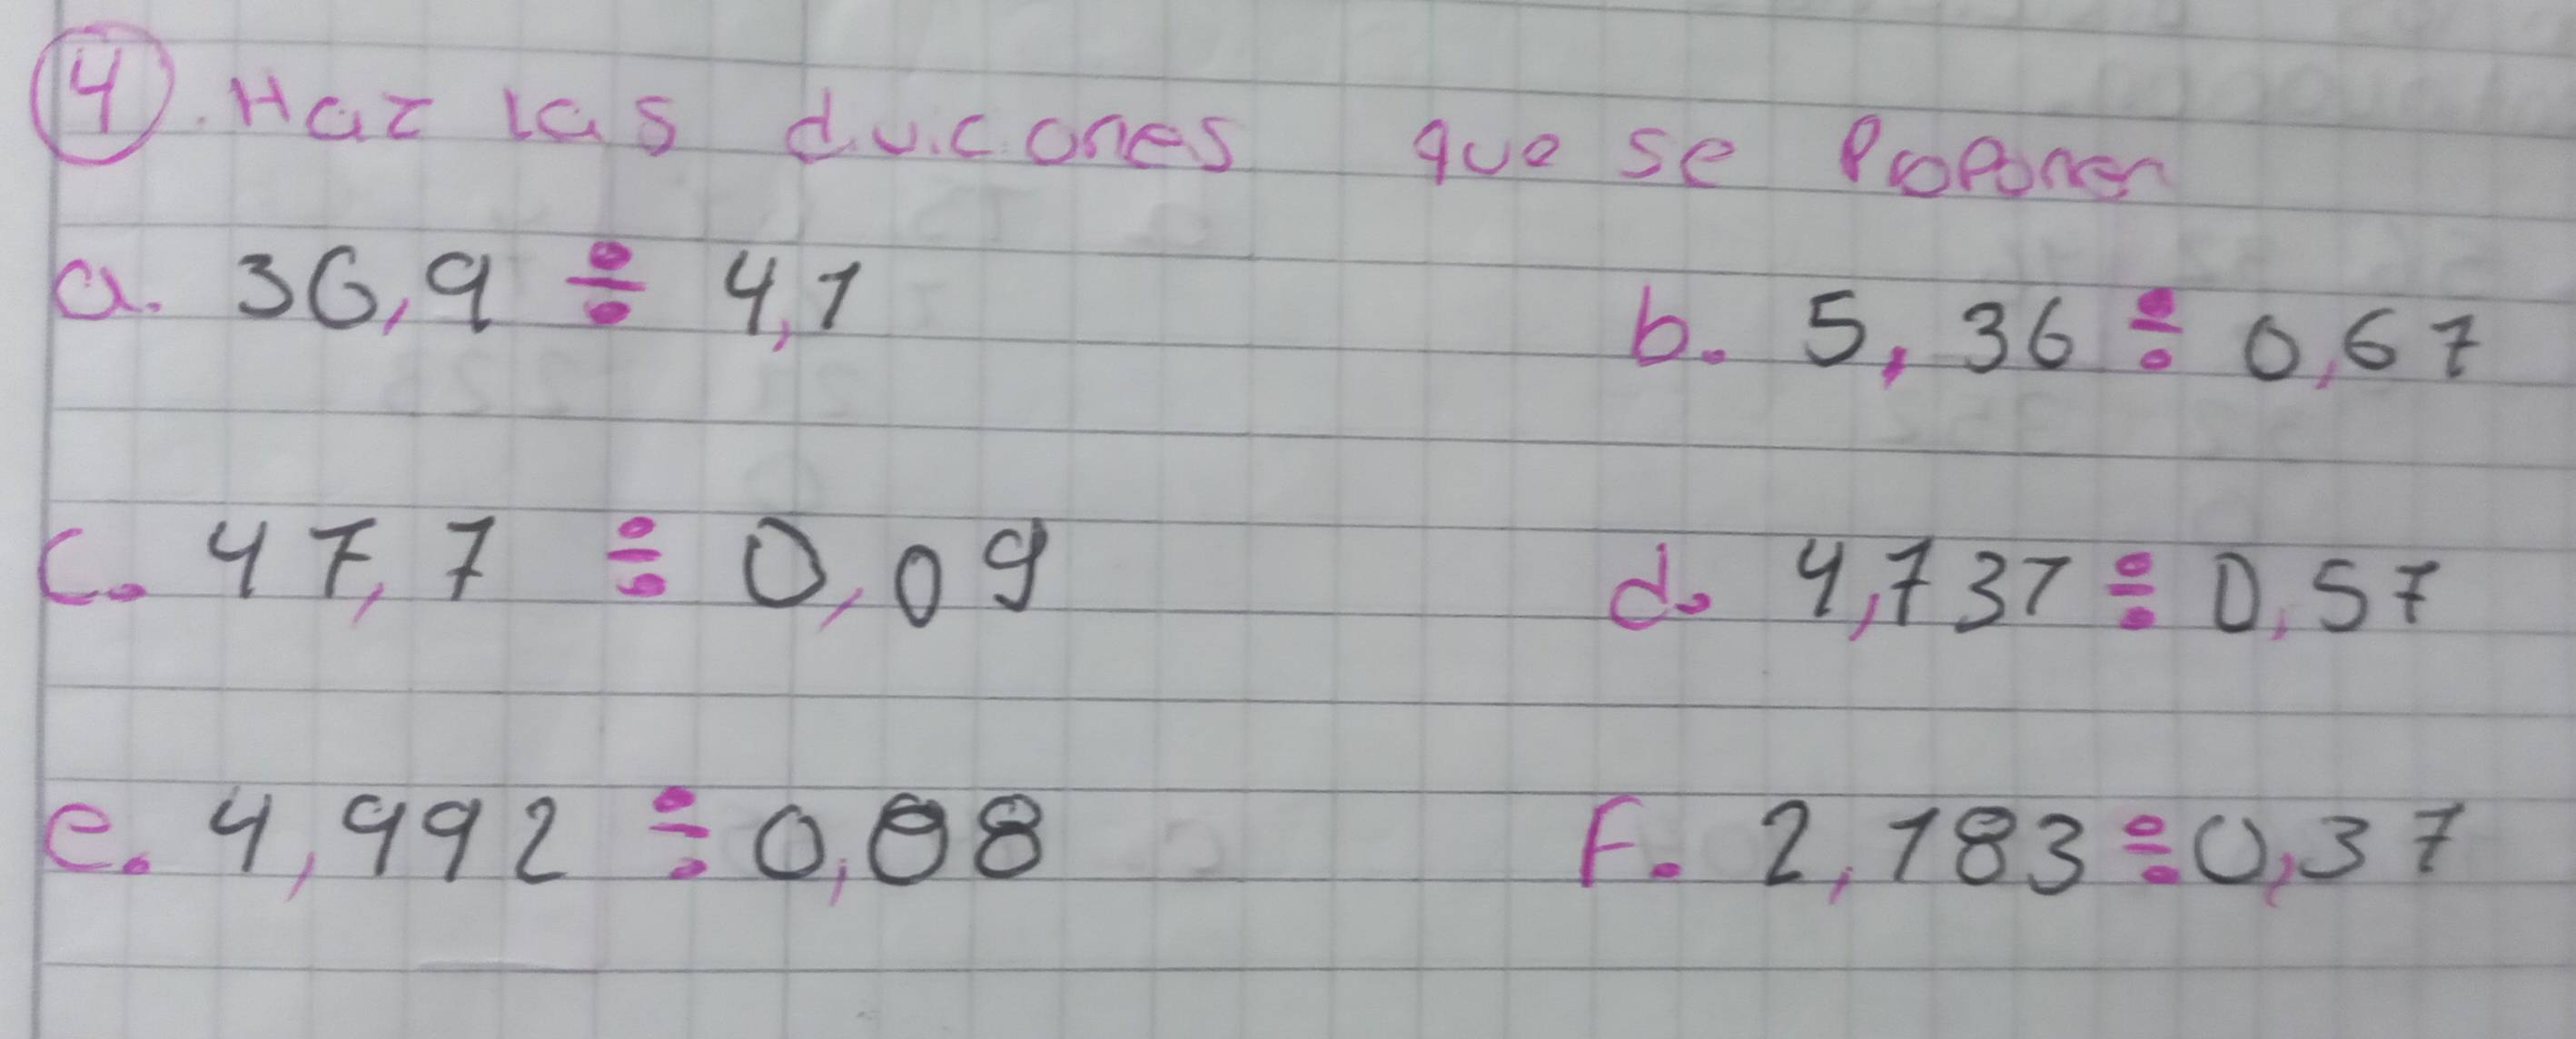 4. Haz las diviciones que se proponen
a. 36,9 ÷ 4,1 b. 5,36 ÷ 0,67
c. 47,7 ÷ 0,09 d. 4,737 ÷ 0,57
e. 4,992 ÷ 0,08 F. 2,183 ÷ 0,37